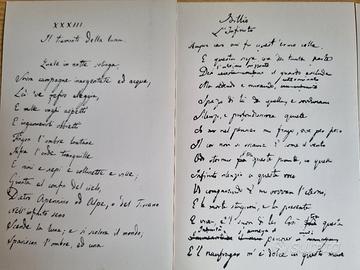 XXXIII
Il tramonto della luna.
Quale in notte solinga
Sovra campagne inargentate ed acque,
Là 've zefiro aleggia,
E mille vaghi aspetti
E ingannevoli obbietti
Fingon l'ombre lontane
Infra l'onde tranquille
E rami e siepi e collinette e ville;
Giunta al confin del cielo,
Dietro Apennino od Alpe, o del Tirreno
Nell'infinito seno
Scende la luna; e si scolora il mondo;
Spariscon l'ombre, ed una
Idillio
L'Infinito
Sempre caro mi fu quest'ermo colle,
E questa siepe, che da tanta parte
Dell'ultimo orizzonte il guardo esclude.
Ma sedendo e mirando,
Spazio di là da quella, e sovrumani
Silenzi, e profondissima quiete
Io nel pensier mi fingo, ove per poco
Il cor non si spaura. E come il vento
Odo stormir tra queste piante, io quello
Infinito silenzio a questa voce
Vo comparando: e mi sovvien l'eterno,
E le morte stagioni, e la presente
E viva, e 'l suon di lei. Così tra questa
Immensità s'annega il
pensier
E 'l naufragar m'è dolce in questo mare.